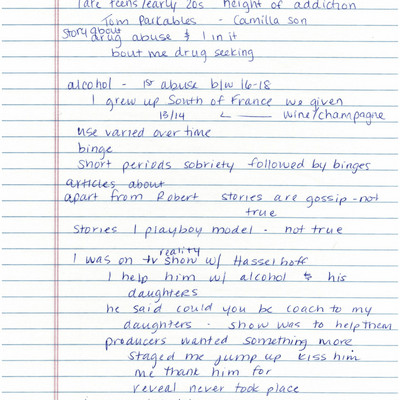 late teens/early 20s height of addiction
Tom Parkables - Camilla son
story about
drug abuse & I in it
bout me drug seeking
alcohol - 1st abuse b/w 16-18
I grew up South of France we given
13/14 ← wine/champagne
use varied over time
binge
short periods sobriety followed by binges
articles about
apart from Robert stories are gossip - not
true
Stories I playboy model - not true
reality
I was on tv show w/ Hasselhoff
I help him w/ alcohol & his
daughters
he said could you be coach to my
daughters - show was to help them
producers wanted something more
staged me jump up kiss him
me thank him for
reveal never took place